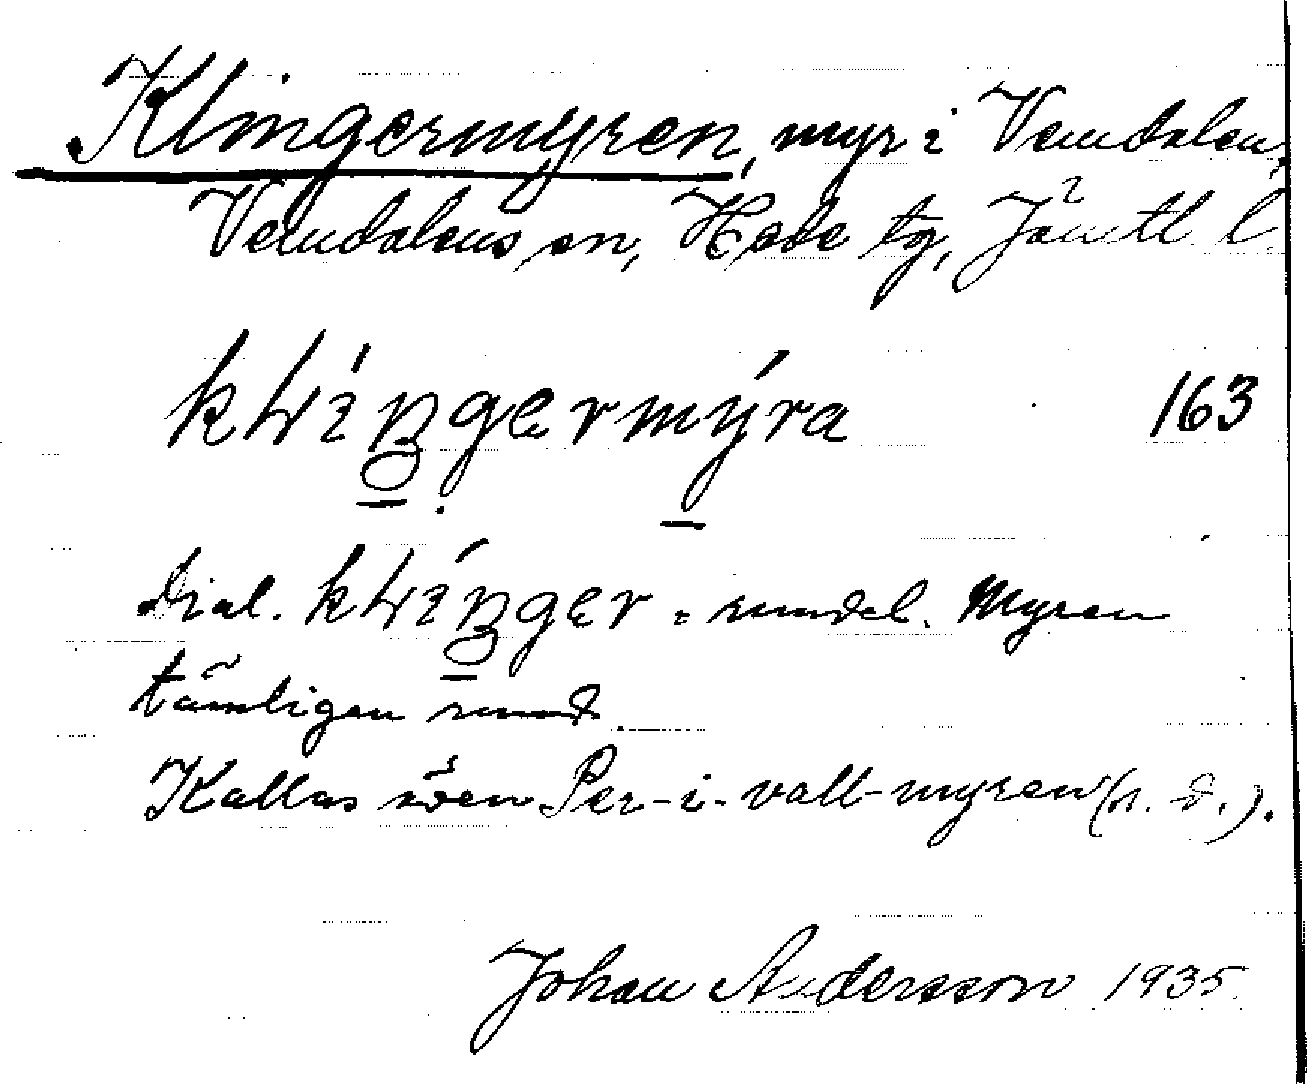 Klingermyren, myr i Vemdalen,
Vemdalens sn, Hede tg, Jämtl l.
klingermýra 163
Dial. klinger = rundel. Myren
tämligen rund.
Kallas även Per-i-vall-myren (s. d.).
Johan Andersson 1935